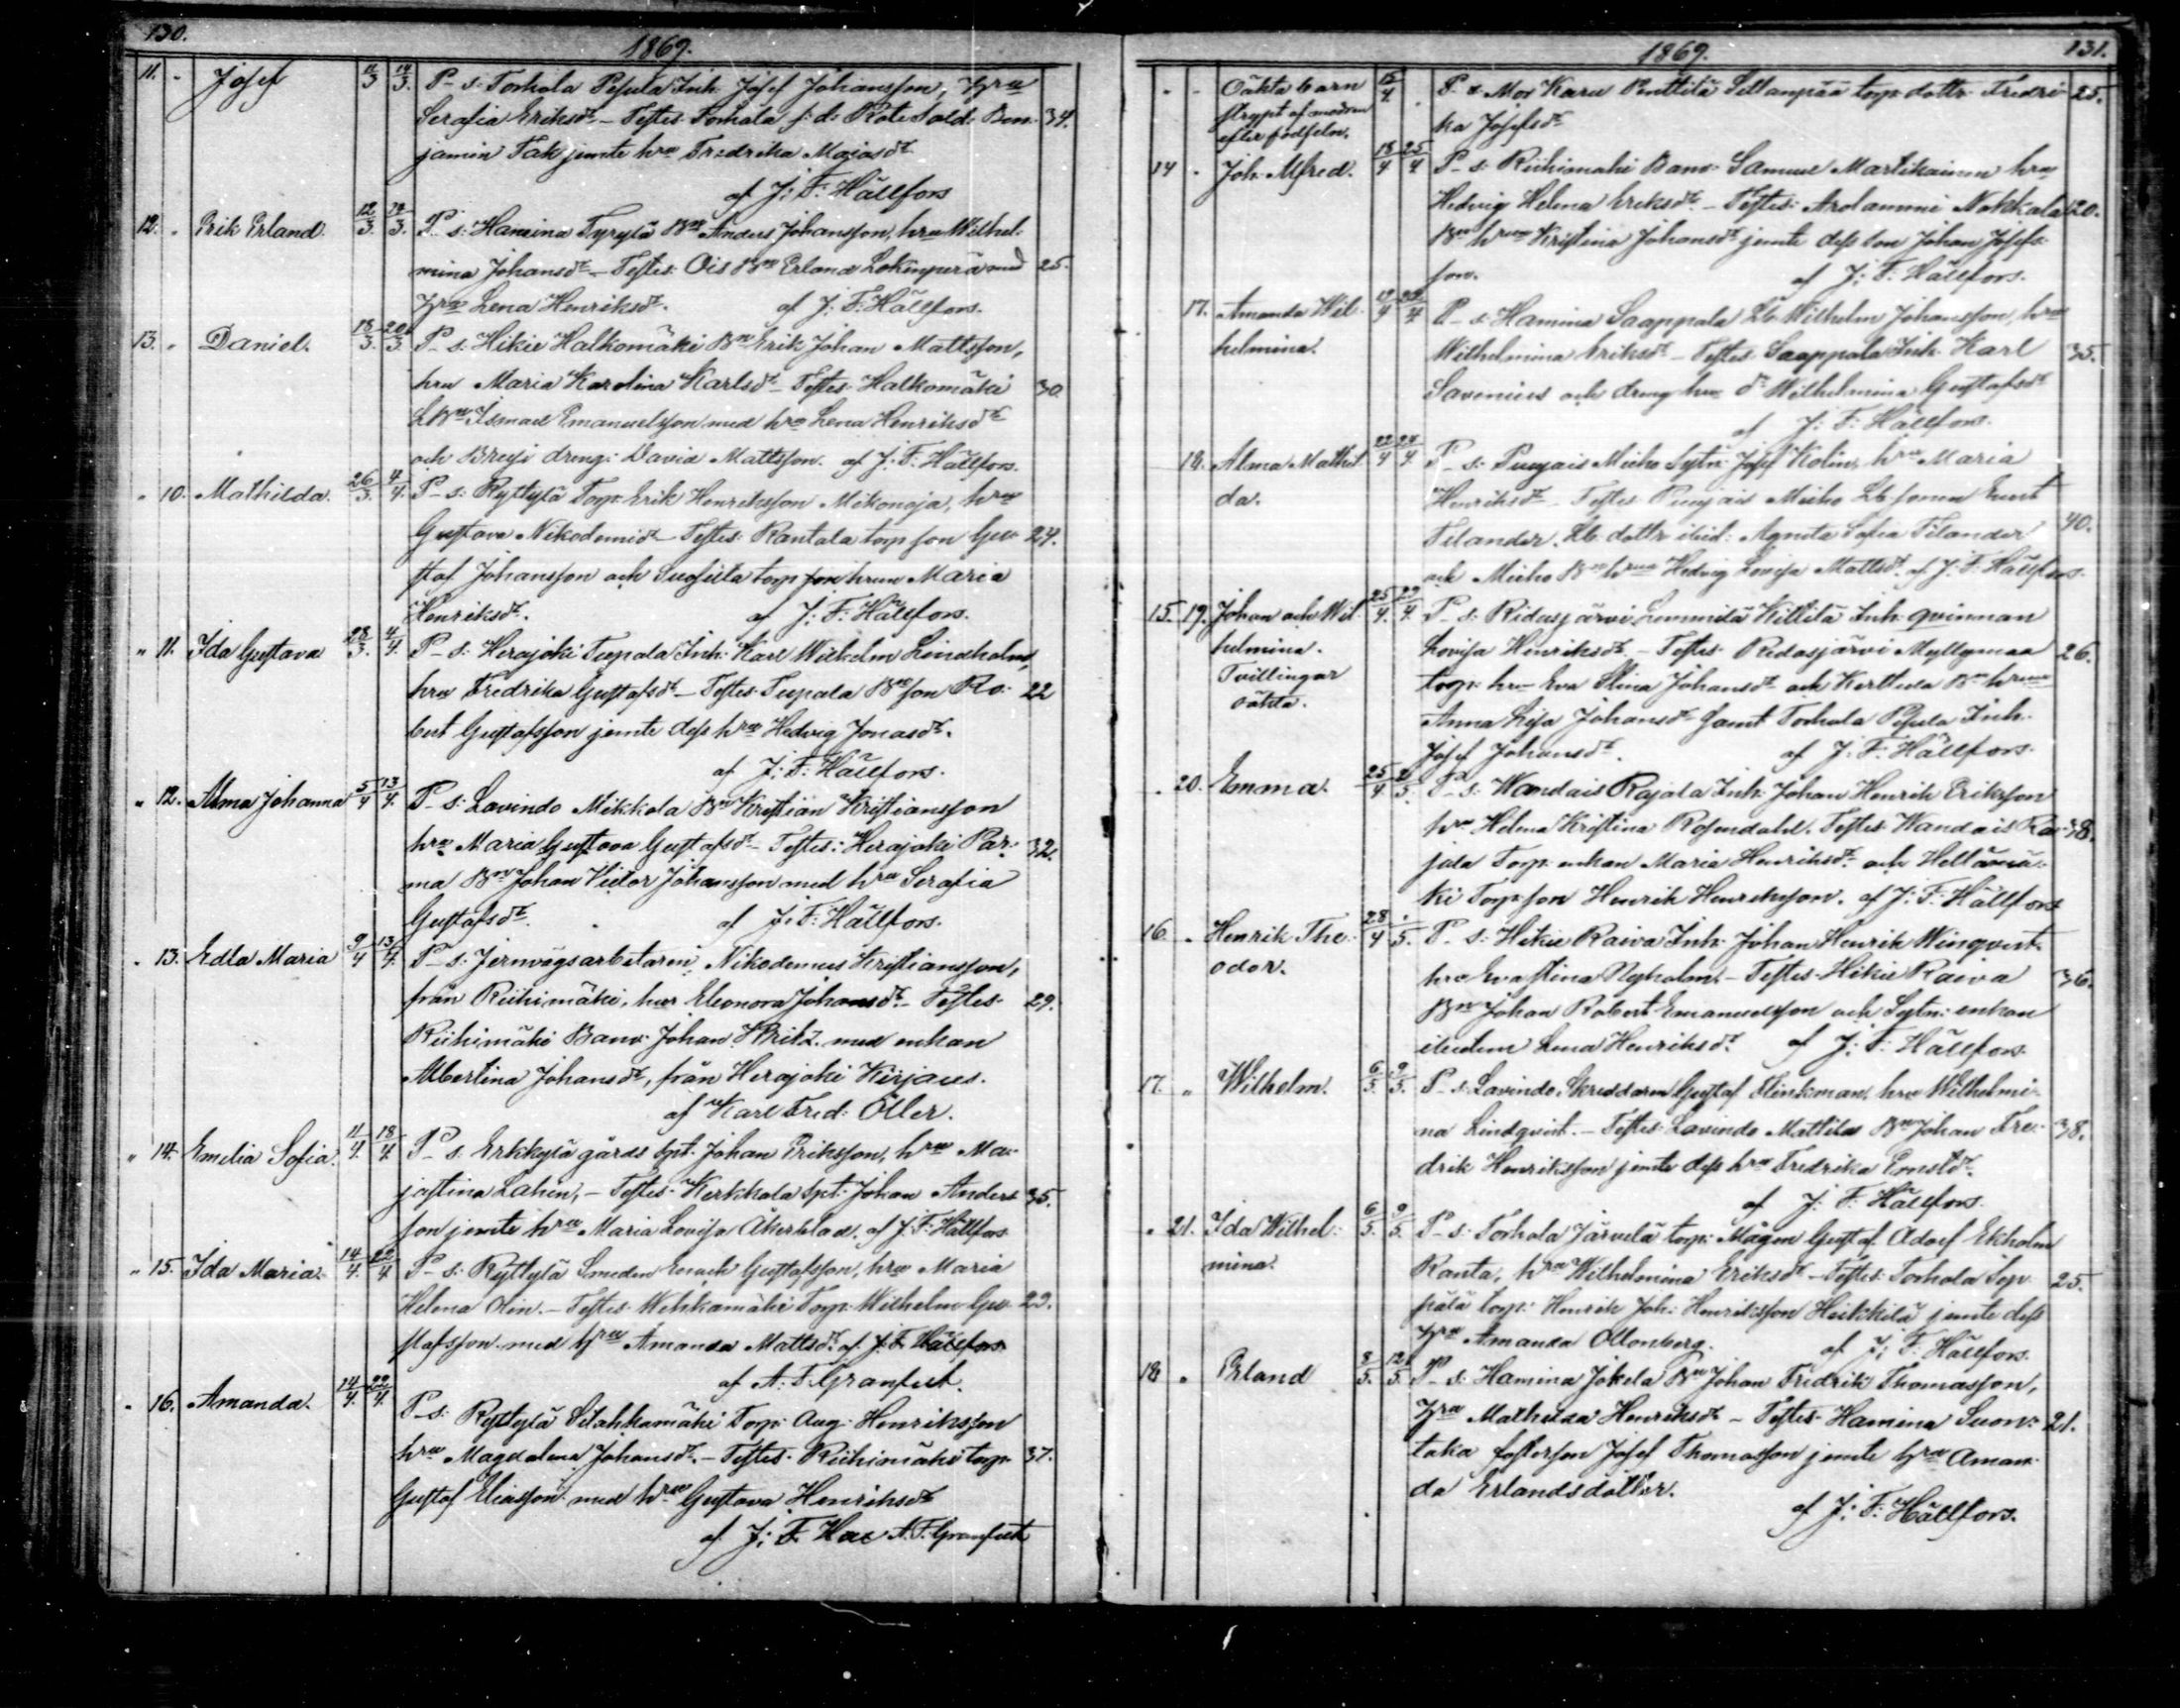 130.
1869.
11. - Josef 11/3 14/3. P_s: Torhola Pesula Inh. Josef Johansson, hru
Serafia Eriksdr. - Testes: Tomola f:d: Rote Sold. Ben- 34.
jamin Tak jemte hru Fredrika Majasdr
af J: F: Hällfors
12. " Erik Erland. 12/3. 14/3. P_s: Hamina Tyrylä Bn Anders Johansson, hru Wilhel-
mina Johansdr. - Testes: Ois Bn Erland Lokinperä med 25.
hru Lena Henriksdr. af J: F: Hällfors.
13. " Daniel. 18/3. 20/3. P_s: Hikiä Halkomäki Bn Erik Johan Mattsson,
hru Maria Karolina Karlsdr. - Testes: Halkomäki 30
LBn Ismael Emanuelsson med hru Lena Henriksdr
och dreng: David Mattsson. af J: F: Hällfors.
" 10. Mathilda. 26/3. 4/4. P_s: Ryttylä Torp: Erik Henriksson Mikonoja, hru
Gustava Nikodemidr - Testes: Rantala torp son Gu- 24.
staf Johansson och torp son hrun Maria
Henriksdr. af J: F: Hällfors.
" 11. Ida Gustava 28/3. 4/4. P_s: Herajoki Tupala Inh: Karl Wilhelm Lindholm,
hru Fredrika Gustafsdr - Testes: Tupala Bn son Ro- 22
bert Gustafsson jemte dess hru Hedvig Jonasdr.
af J: F: Hällfors.
" 12. Alma Johanna 5/4 13/4. P_s: Lavindo Mikkola Bn Kristian Kristiansson
hru Maria Gustava Gustafsdr - Testes: Herajoki Par- 32.
ma Bn Johan Victor Johansson med hru Serafia
Gustafsdr. af J: F: Hällfors.
" 13. Edla Maria 9/4 13/4. P_s: Jernvägsarbetaren Nikodemus Kristiansson,
från Riihimäki, hru Eleonora Johansdr. - Testes: 29.
Riihimäki Banv: Johan Britz med enkan
Albertina Johansdr, från Herajoki Kirjaus.
af Karl Fred: Öller.
" 14. Emelia Sofia. 11/4. 18/4. P_s: Erkkylä gårds Spt: Johan Eriksson, hru Ma-
jastina Lahin, - Testes: Kerkkola Spt: Johan Anders- 35.
son jemte hru Maria Lovisa Åkerblad. af J: F: Hällfors
" 15. Ida Maria. 14/4. 22/4. P_s: Ryttylä Smeden Gustafsson, hru Maria
Helena Olin. - Testes: Wehkamäki Torp: Wilhelm Gu- 29.
stafsson med hru Amanda Mattsdr. af J: F: Hällfors
af A: F: Granfelt.
" 16. Amanda. 14/4. 22/4. P_s: Ryttylä Torp: Aug: Henriksson
hru Magdalena Johansdr. - Testes: Riihimäki torp. 37.
Gustaf Eliasson med hru Gustava Henriksdr
af J: F: A. F. Granfelt
1869.
131.
" - Oäkta barn 15/4. P. s: Mor Karu Penttilä Sillanpää torp. dottr. Fredri- 25.
strypt af modren ka Josefsdr
efter födseln.
14 - Joh. Alfred. 18/4 25/4 P_s: Riihimäki Banv: Samuel Martikainen hru
Hedvig Helena Eriksdr. - Testes: Arolammi Nokkala 20.
Bn hrun Kristina Johansdr jemte dess son Johan Josefs-
son. af J: F: Hällfors.
17. Amanda Wil- 19/4 P_s: Hamina Saappala Lb Wilhelm Johansson, hru
helmina. Wilhelmina Eriksdr - Testes: Saappala Inh. Karl 35.
Savenius och dreng hru dr Wilhelmina Gustafsdr
af J: F: Hällfors.
18. Alma Mathil- 22/4 24/4. P_s: Punjais Micko Sytn: Josef Kolin, hru Maria
da. Henriksdr - Testes: Punjais Micko Lb sonen
Tilander. Lb dottr ibid: Agneta Sofia Tilander 40.
och Micko Bn hrun Hedvig Lovisa Mattsdr. af J: F: Hällfors.
15. 19. Johan och Wil- 25/4. 29/4. P_s: Ridasjärvi Kittilä Inh. qvinnan
helmina. Lovisa Henriksdr. - Testes: Ridasjärvi Myllymaa 26.
Tvillingar torp. hru Eva Stina Johansdr och Kerttula Bn hrun
oäkta. Anna Lisa Johansdr samt Torhola Pesula Inh.
Josef Johansdr. af J: F: Hällfors.
" 20. Emma. 25/4. 2/5. P_s: Wandais Rajala Inh. Johan Henrik Eriksson
hru Helena Kristina Rosendahl. Testes: Wandais Ra- 38.
jala Torp: enkan Maria Henriksdr och
ki Torp son Henrik Henriksson. af J: F: Hällfors
16. " Henrik The- 28/4 P_s: Hikiä Raiva Inh: Johan Henrik Winqvist.
odor. hru Evastina Nyholm. - Testes: Hikiä Raiva 36.
Bn Johan Robert Emanuelsson och Sytn: enkan
ibidem Lena Henriksdr. af J: F: Hällfors
17. " Wilhelm. 6/5. 9/5. P_s: Lavindo, Skreddaren Gustaf Flinkman, hru Wilhelmi-
na Lindqvist. - Testes: Lavindo Mattila Bn Johan Fre- 38.
drik Henriksson jemte dess hru Fredrika Ernstdr.
af J: F: Hällfors
" 21. Ida Wilhel- 6/5. 9/5. P_s: Torhola Järvelä torp: Mågen Gustaf Adolf Ekholm
mina. Ranta, hru Wilhelmina Eriksdr - Testes: Torhola Sep- 25.
pälä torp: Henrik Joh: Henriksson Heikkilä jemte dess
hru Amanda Ollonberg. af J: F: Hällfors.
18 " Erland 8/5. 12/5. P_s: Hamina Jokela Bn Johan Fredrik Thomasson,
hru Mathilda Henriksdr - Testes: Hamina Suon- 21.
taka fosterson Josef Thomasson jemte hru Aman-
da Erlandsdotter.
af J: F: Hällfors.